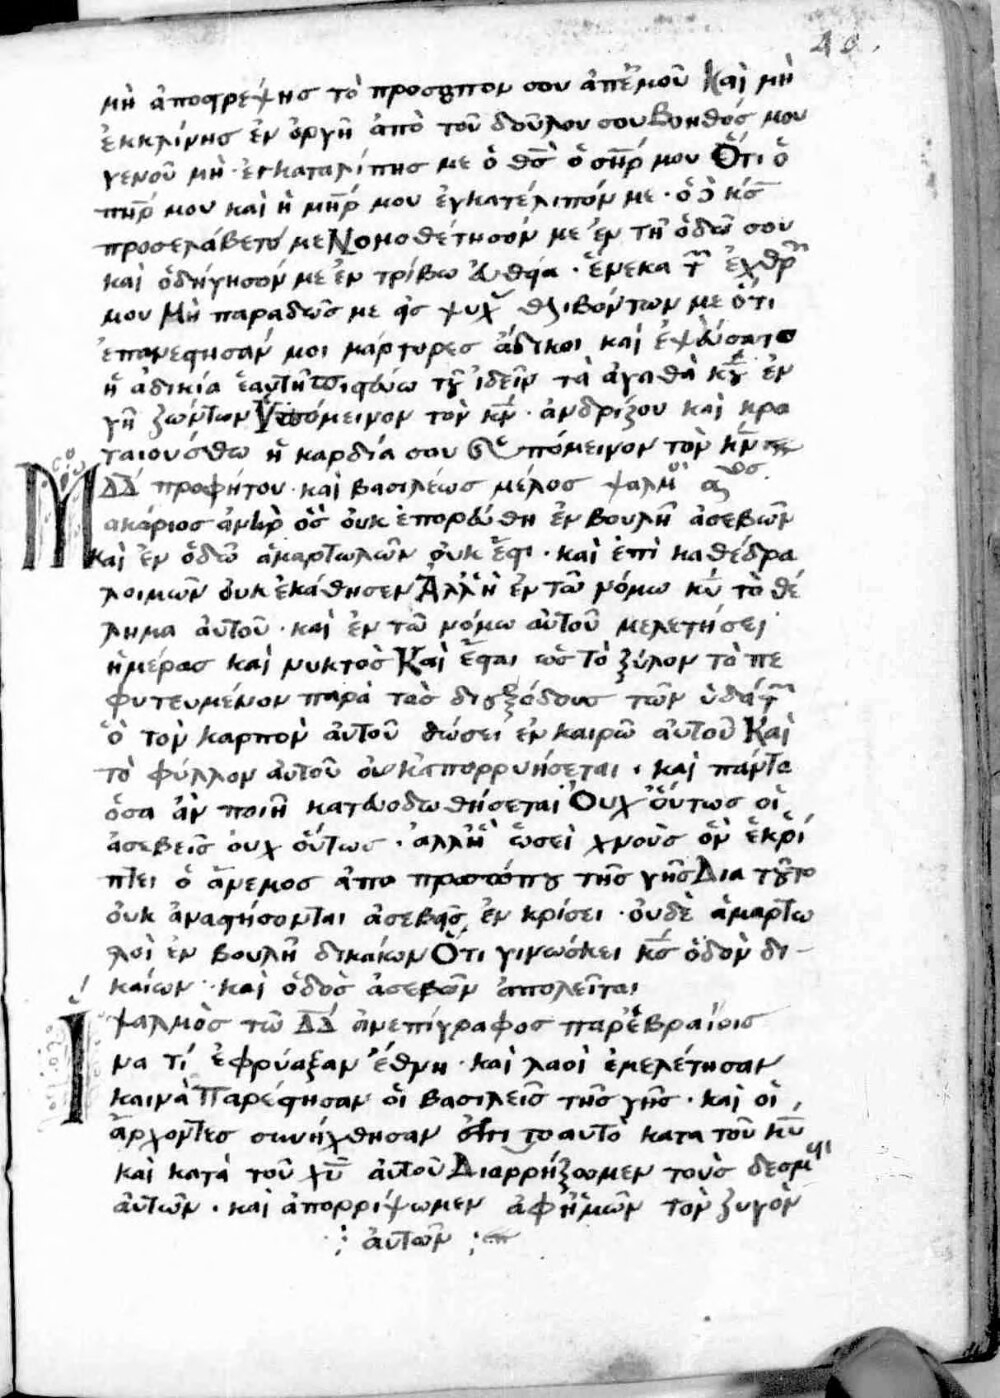 40.
μὴ ἀποστρέψης τὸ προσωπον σου ἀπἐμοῦ Καὶ μὴ
ἐκκλίνης ἐν ὀργῆ ἀπὸ τοῦ δούλου σου Βοηθός μου
γενοῦ μὴ ἐγκαταλίπης με ὁ θς ὁ σηρ μου Ὅτι ὁ
πηρ μου καὶ ἡ μηρ μου ἐγκατέλιπόν με · ὁ δὲ κς
προσελάβετό με Νομοθέτησόν με ἐν τῆ ὁδῶ σου
καὶ ὁδήγησόν με ἐν τρίβω εὐθεία · ἕνεκα τῶν ἐχθρῶν
μου Μὴ παραδῶς με εἰς ψυχ θλιβόντων με ὅτι
ἐπανέστησάν μοι μάρτυρες ἄδικοι καὶ ἐψεύσατο
ἡ ἀδικία ἑαυτῆ πιστεύω τοῦ ἰδεῖν τὰ ἀγαθὰ κυ ἐν
γῆ ζώντων Ὑπόμεινον τὸν κν · ἀνδρίζου καὶ κρα
ταιούσθω ἡ καρδία σου καὶ ὑπόμεινον τὸν κν
ΔΔ προφήτου · καὶ βασιλέως μέλος ψαλμ αος
Μακάριος ἀνὴρ ὃς οὐκ ἐπορεύθη ἐν βουλῆ ἀσεβῶν
καὶ ἐν ὁδῶ ἁμαρτωλῶν οὐκ ἔστη · καὶ ἐπὶ καθέδρα
λοιμῶν οὐκ ἐκάθησεν Ἀλλἢ ἐν τῶ νόμω κυ τὸ θέ
λημα αὐτοῦ · καὶ ἐν τῶ νόμω αὐτοῦ μελετήσει
ἡμέρας καὶ νυκτὸς Καὶ ἔσται ὡς τὸ ξύλον τὸ πε
φυτευμένον παρὰ τὰς διεξόδους τῶν ὑδάτων
ὃ τὸν καρπὸν αὐτοῦ δώσει ἐν καιρῶ αὐτοῦ Καὶ
τὸ φύλλον αὐτοῦ οὐκ ἀπορρυήσεται · καὶ πάντα
ὅσα ἂν ποιῆ κατευοδωθήσεται Οὐχ οὕτως οἱ
ἀσεβεῖς οὐχ οὕτως · ἀλλἢ ὡσεὶ χνοῦς ὃν ἐκρί
πτει ὁ ἄνεμος ἀπο προσώπου τῆς γῆς Δια τοῦτο
οὐκ ἀναστήσονται ἀσεβεῖς ἐν κρίσει · οὐδὲ ἁμαρτω
λοὶ ἐν βουλῆ δικαίων Ὅτι γινώσκει κς ὁδὸν δι-
καίων · καὶ ὁδὸς ἀσεβῶν ἀπολεῖται
ψαλμὸς τῶ ΔΔ ἀνεπίγραφος παρἑβραίοις
Ἵνα τί ἐφρύαξαν ἔθνη · καὶ λαοὶ ἐμελέτησαν
καινὰ Παρέστησαν οἱ βασιλεῖς τῆς γῆς · καὶ οἱ
ἄρχοντες συνήχθησαν ἐπι το αυτὸ κατα τοῦ κυ
καὶ κατὰ τοῦ χυ αὐτοῦ Διαρρήξωμεν τοὺς δεσμοὺς
αὐτῶν · καὶ ἀπορρίψωμεν ἀφἡμῶν τὸν ζυγὸν
αὐτῶν